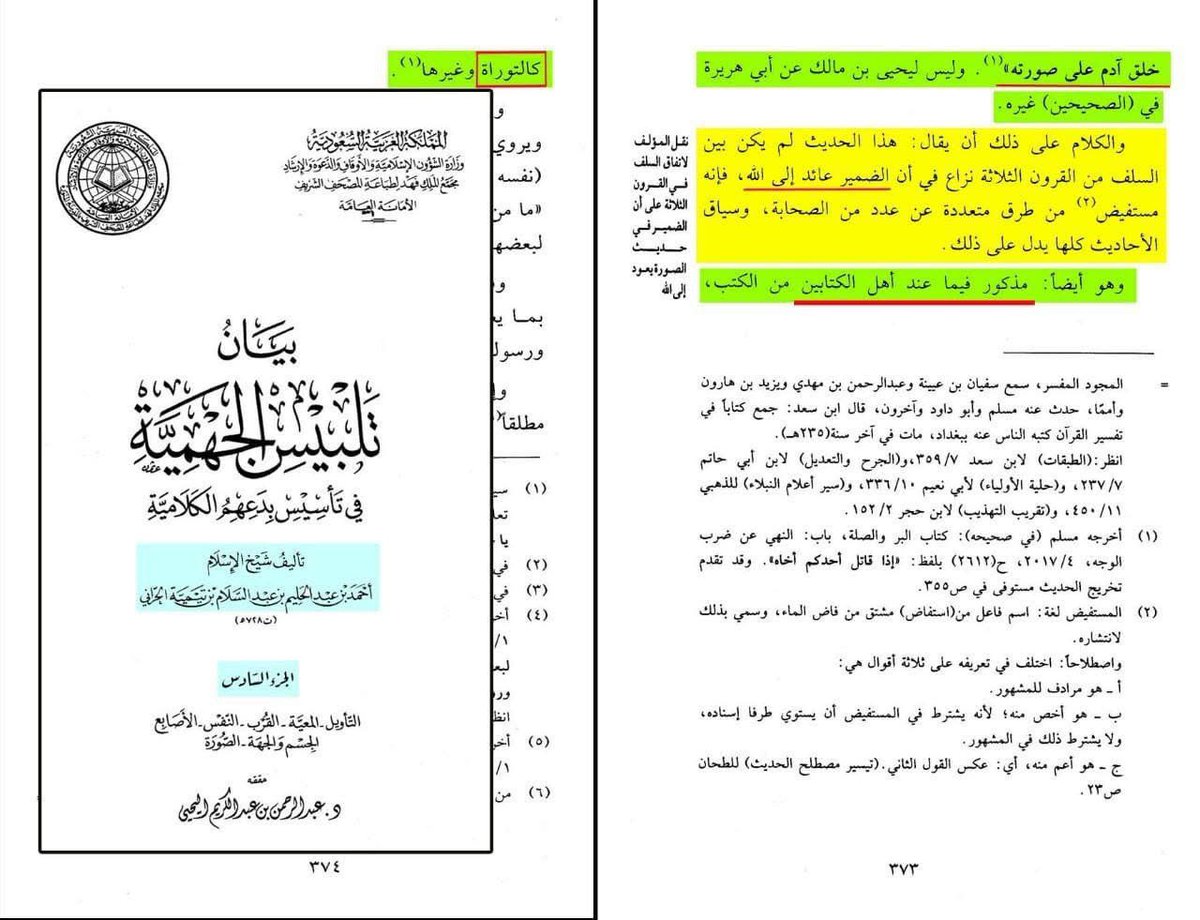 خلق آدم على صورته»(١). وليس ليحيى بن مالك عن أبي هريرة
في (الصحيحين) غيره.
والكلام على ذلك أن يقال: هذا الحديث لم يكن بين
السلف من القرون الثلاثة نزاع في أن الضمير عائد إلى الله، فإنه
مستفيض(٢) من طرق متعددة عن عدد من الصحابة، وسياق
الأحاديث كلها يدل على ذلك.
وهو أيضاً: مذكور فيما عند أهل الكتابين من الكتب،
نقل المؤلف
لاتفاق السلف
في القرون
الثلاثة على أن
الضمير في
حديث
الصورة يعود
إلى الله
= المجود المفسر، سمع سفيان بن عيينة وعبدالرحمن بن مهدي ويزيد بن هارون
وأممًا، حدث عنه مسلم وأبو داود وآخرون، قال ابن سعد: جمع كتاباً في
تفسير القرآن كتبه الناس عنه ببغداد، مات في آخر سنة(٢٣٥هـ).
انظر:(الطبقات) لابن سعد ٣٥٩/٧،و(الجرح والتعديل) لابن أبي حاتم
٢٣٧/٧، و(حلية الأولياء) لأبي نعيم ٣٣٦/١٠، و(سير أعلام النبلاء) للذهبي
٤٥٠/١١، و(تقريب التهذيب) لابن حجر ١٥٢/٢.
(١) أخرجه مسلم (في صحيحه): كتاب البر والصلة، باب: النهي عن ضرب
الوجه، ٢٠١٧/٤، ح(٢٦١٢) بلفظ: «إذا قاتل أحدكم أخاه». وقد تقدم
تخريج الحديث مستوفى في ص٣٥٥.
(٢) المستفيض لغة: اسم فاعل من(استفاض) مشتق من فاض الماء، وسمي بذلك
لانتشاره.
واصطلاحاً: اختلف في تعريفه على ثلاثة أقوال هي:
أ ـ هو مرادف للمشهور.
ب ـ هو أخص منه؛ لأنه يشترط في المستفيض أن يستوي طرفا إسناده،
ولا يشترط ذلك في المشهور.
ج ـ هو أعم منه، أي: عكس القول الثاني.(تيسير مصطلح الحديث) للطحان
ص٢٣.
٣٧٣
كالتوراة وغيرها(١).
و
ويروي
(نفسه
«ما من
لبعضه
بما يع
ورسول
مطلقاً
(١) سي
تعل
يا
(٢) في
(٣) في
(٤) أخر
/١
لبع
ورو
انظ
(٥) أخر
/١
(٦) من
المملكة العربية السعودية
وزارة الشؤون الإسلامية والأوقاف والدعوة والإرشاد
مجمع الملك فهد لطباعة المصحف الشريف
الأمانة العامة
بَيَانُ
تَلْبِيسِ الجَهْمِيَّةِ
في تَأسِيْسِ بِدَعِهِمُ الكَلَامِيَّةِ
تأليف شيخ الإسلام
أحمد بن عبد الحليم بن عبد السلام بن تيمية الحراني
(ت٧٢٨هـ)
الجزء السادس
التأويل - المعية - القرب - النفس - الأصابع
الجسم والجهة - الصورة
حققه
د. عبد الرحمن بن عبد الكريم اليحيى
٣٧٤